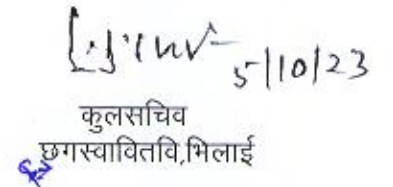 5/10/23
कुलसचिव
छगस्वावितवि,भिलाई